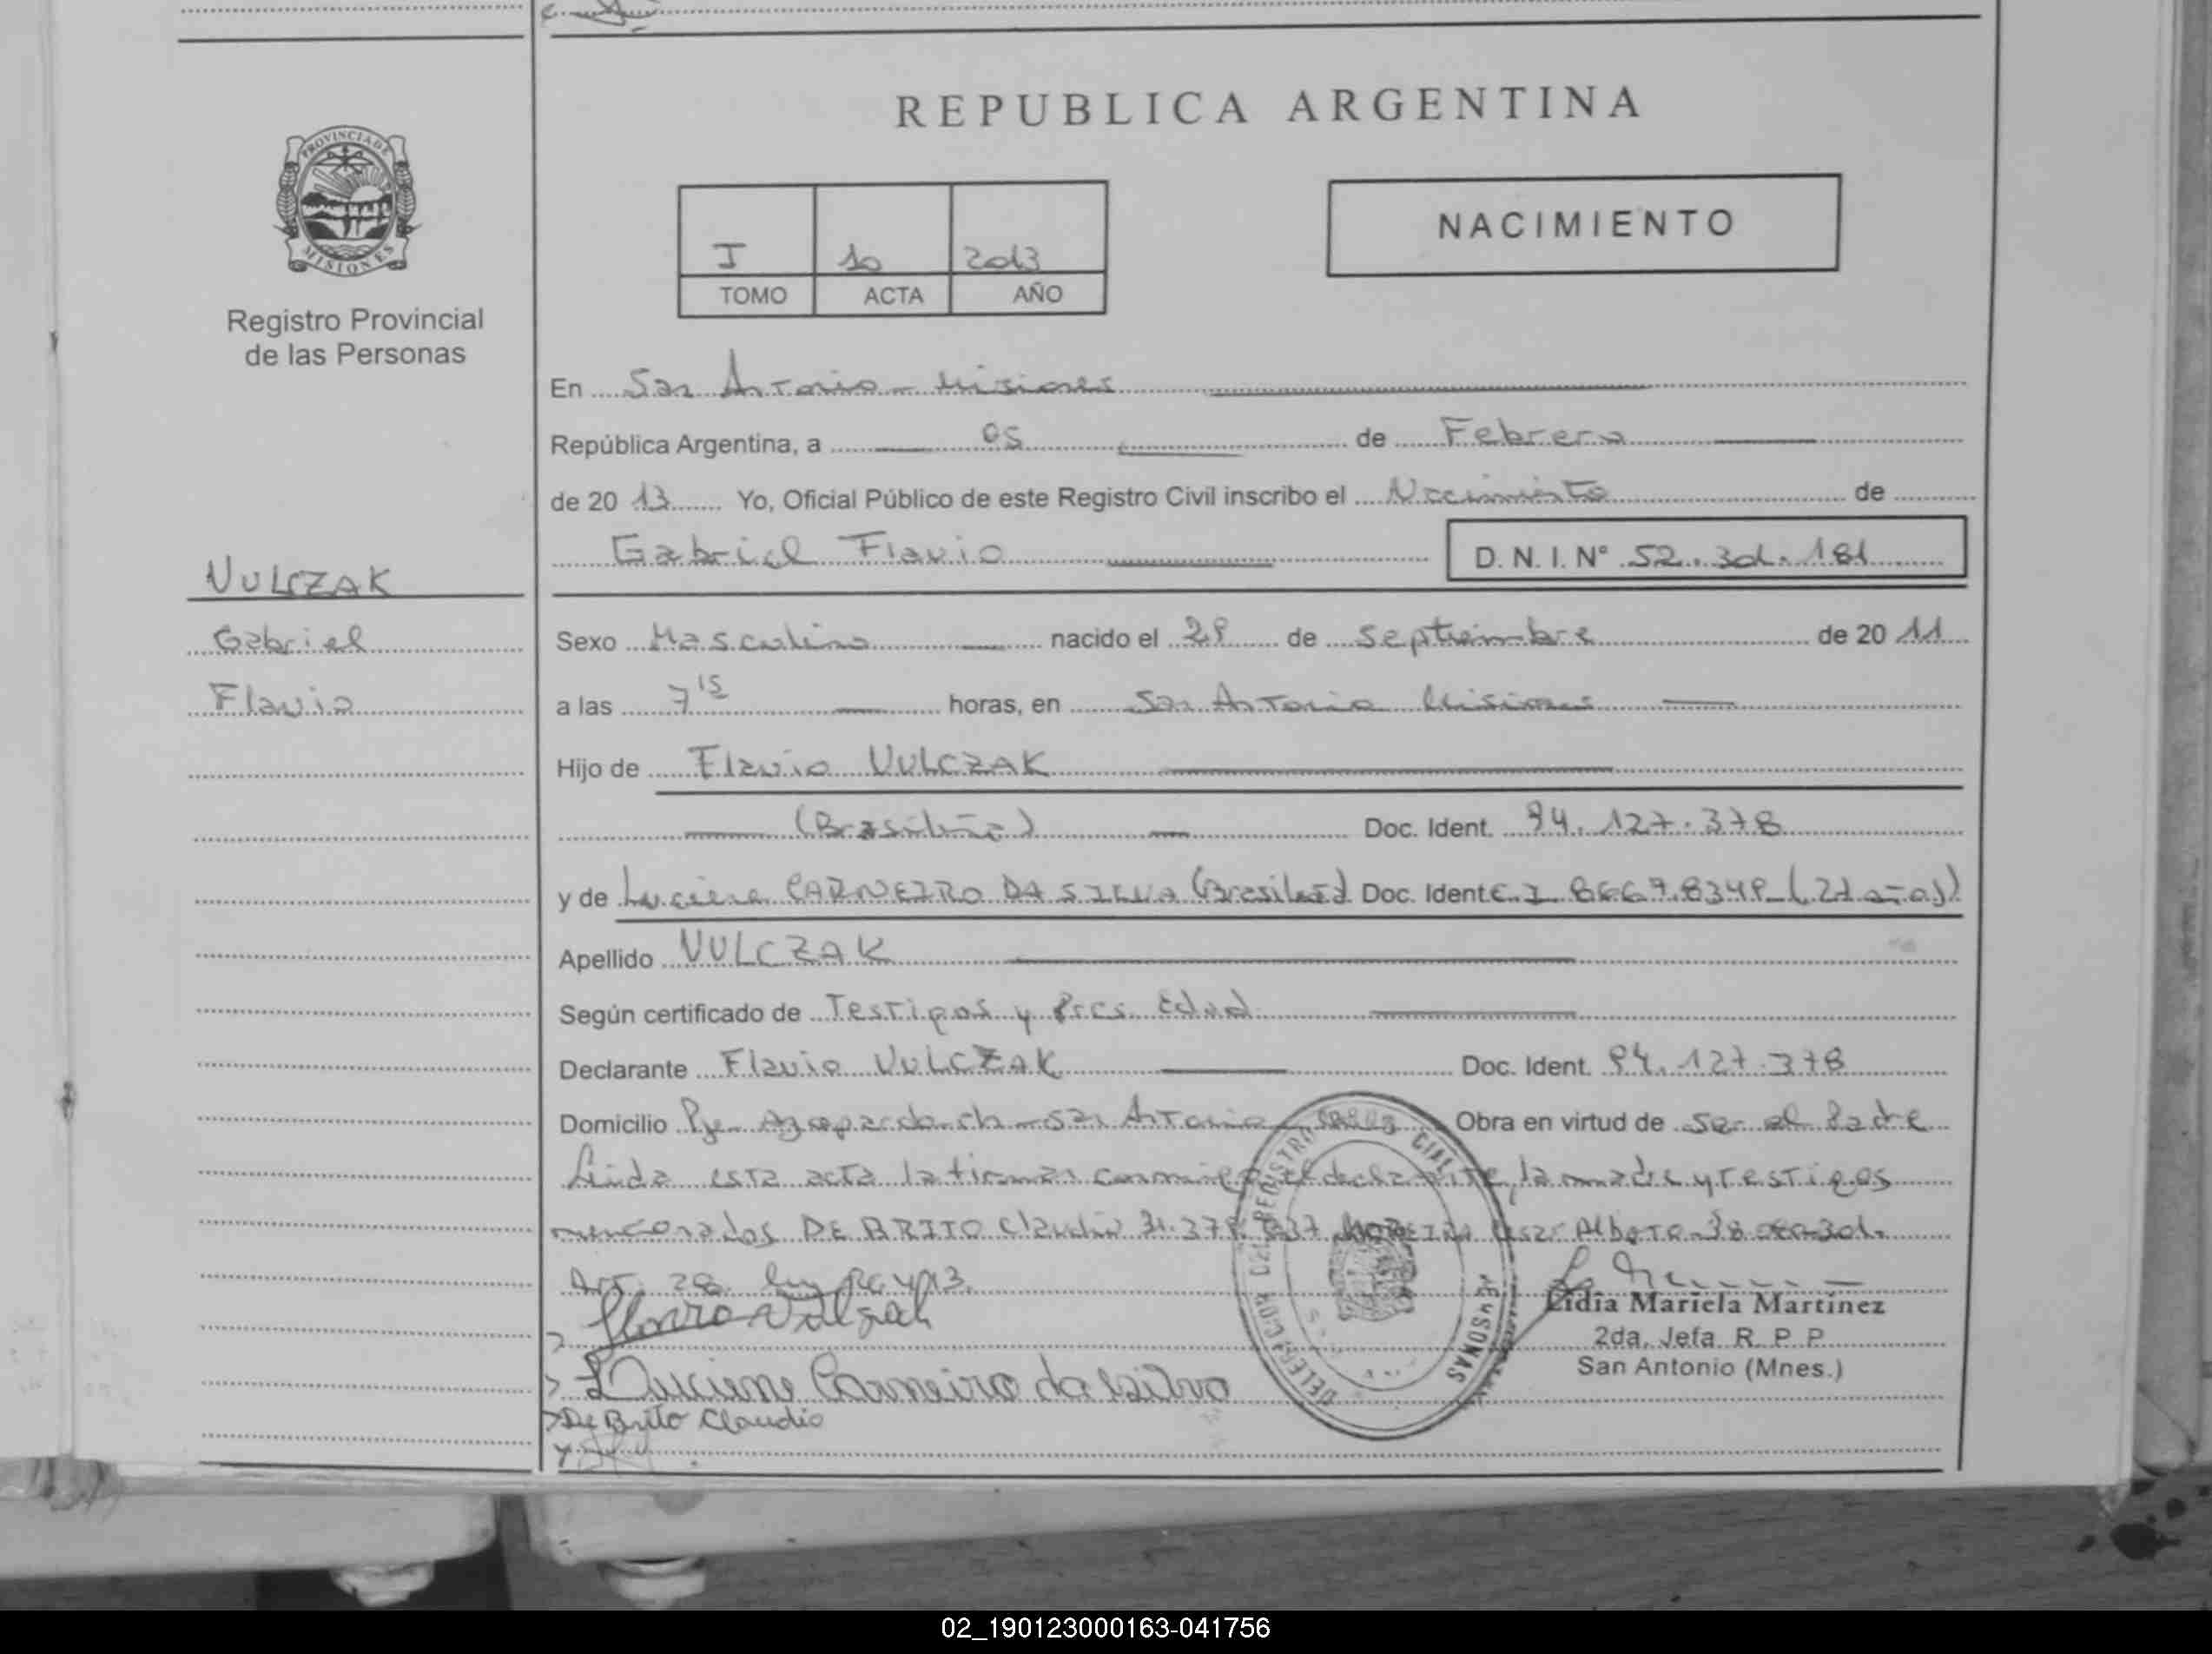 REPUBLICA ARGENTINA
PROVINCIA DE MISIONES
Registro Provincial
de las Personas
I 10 2013
TOMO ACTA AÑO
NACIMIENTO
En San Antonio - Misiones
República Argentina, a 05 de Febrero
de 2013 Yo, Oficial Público de este Registro Civil inscribo el Nacimiento de
Gabriel Flavio D. N. I. N° 52.301.181
VULCZAK
Gabriel
Flavio
Sexo Masculino nacido el 29 de Septiembre de 2011
a las 7 15 horas, en San Antonio Misiones
Hijo de Flavio VULCZAK
(Brasileño) Doc. Ident. 94.127.378
y de Luciene CARNEIRO DA SILVA (Brasileña) Doc. Ident C.I 8667.8349-(21 años)
Apellido VULCZAK
Según certificado de Testigos y Pres. Edad
Declarante Flavio VULCZAK Doc. Ident. 94.127.378
Domicilio Pje. Azopardo s/n - San Antonio Obra en virtud de ser el Padre
Leida esta acta la firman conmigo el declarante, la madre y testigos
mencionados DE BRITO Claudio 31.379. MOREIRA Cesar Alberto 38.
Art. 28. Ley 26.413.
Flavio Vulczak
Luciene Carneiro da Silva
De Brito Claudio
Lidia Mariela Martínez
2da. Jefa R. P. P.
San Antonio (Mnes.)
DELEGACION DEL REGISTRO PERSONAS
02_190123000163-041756